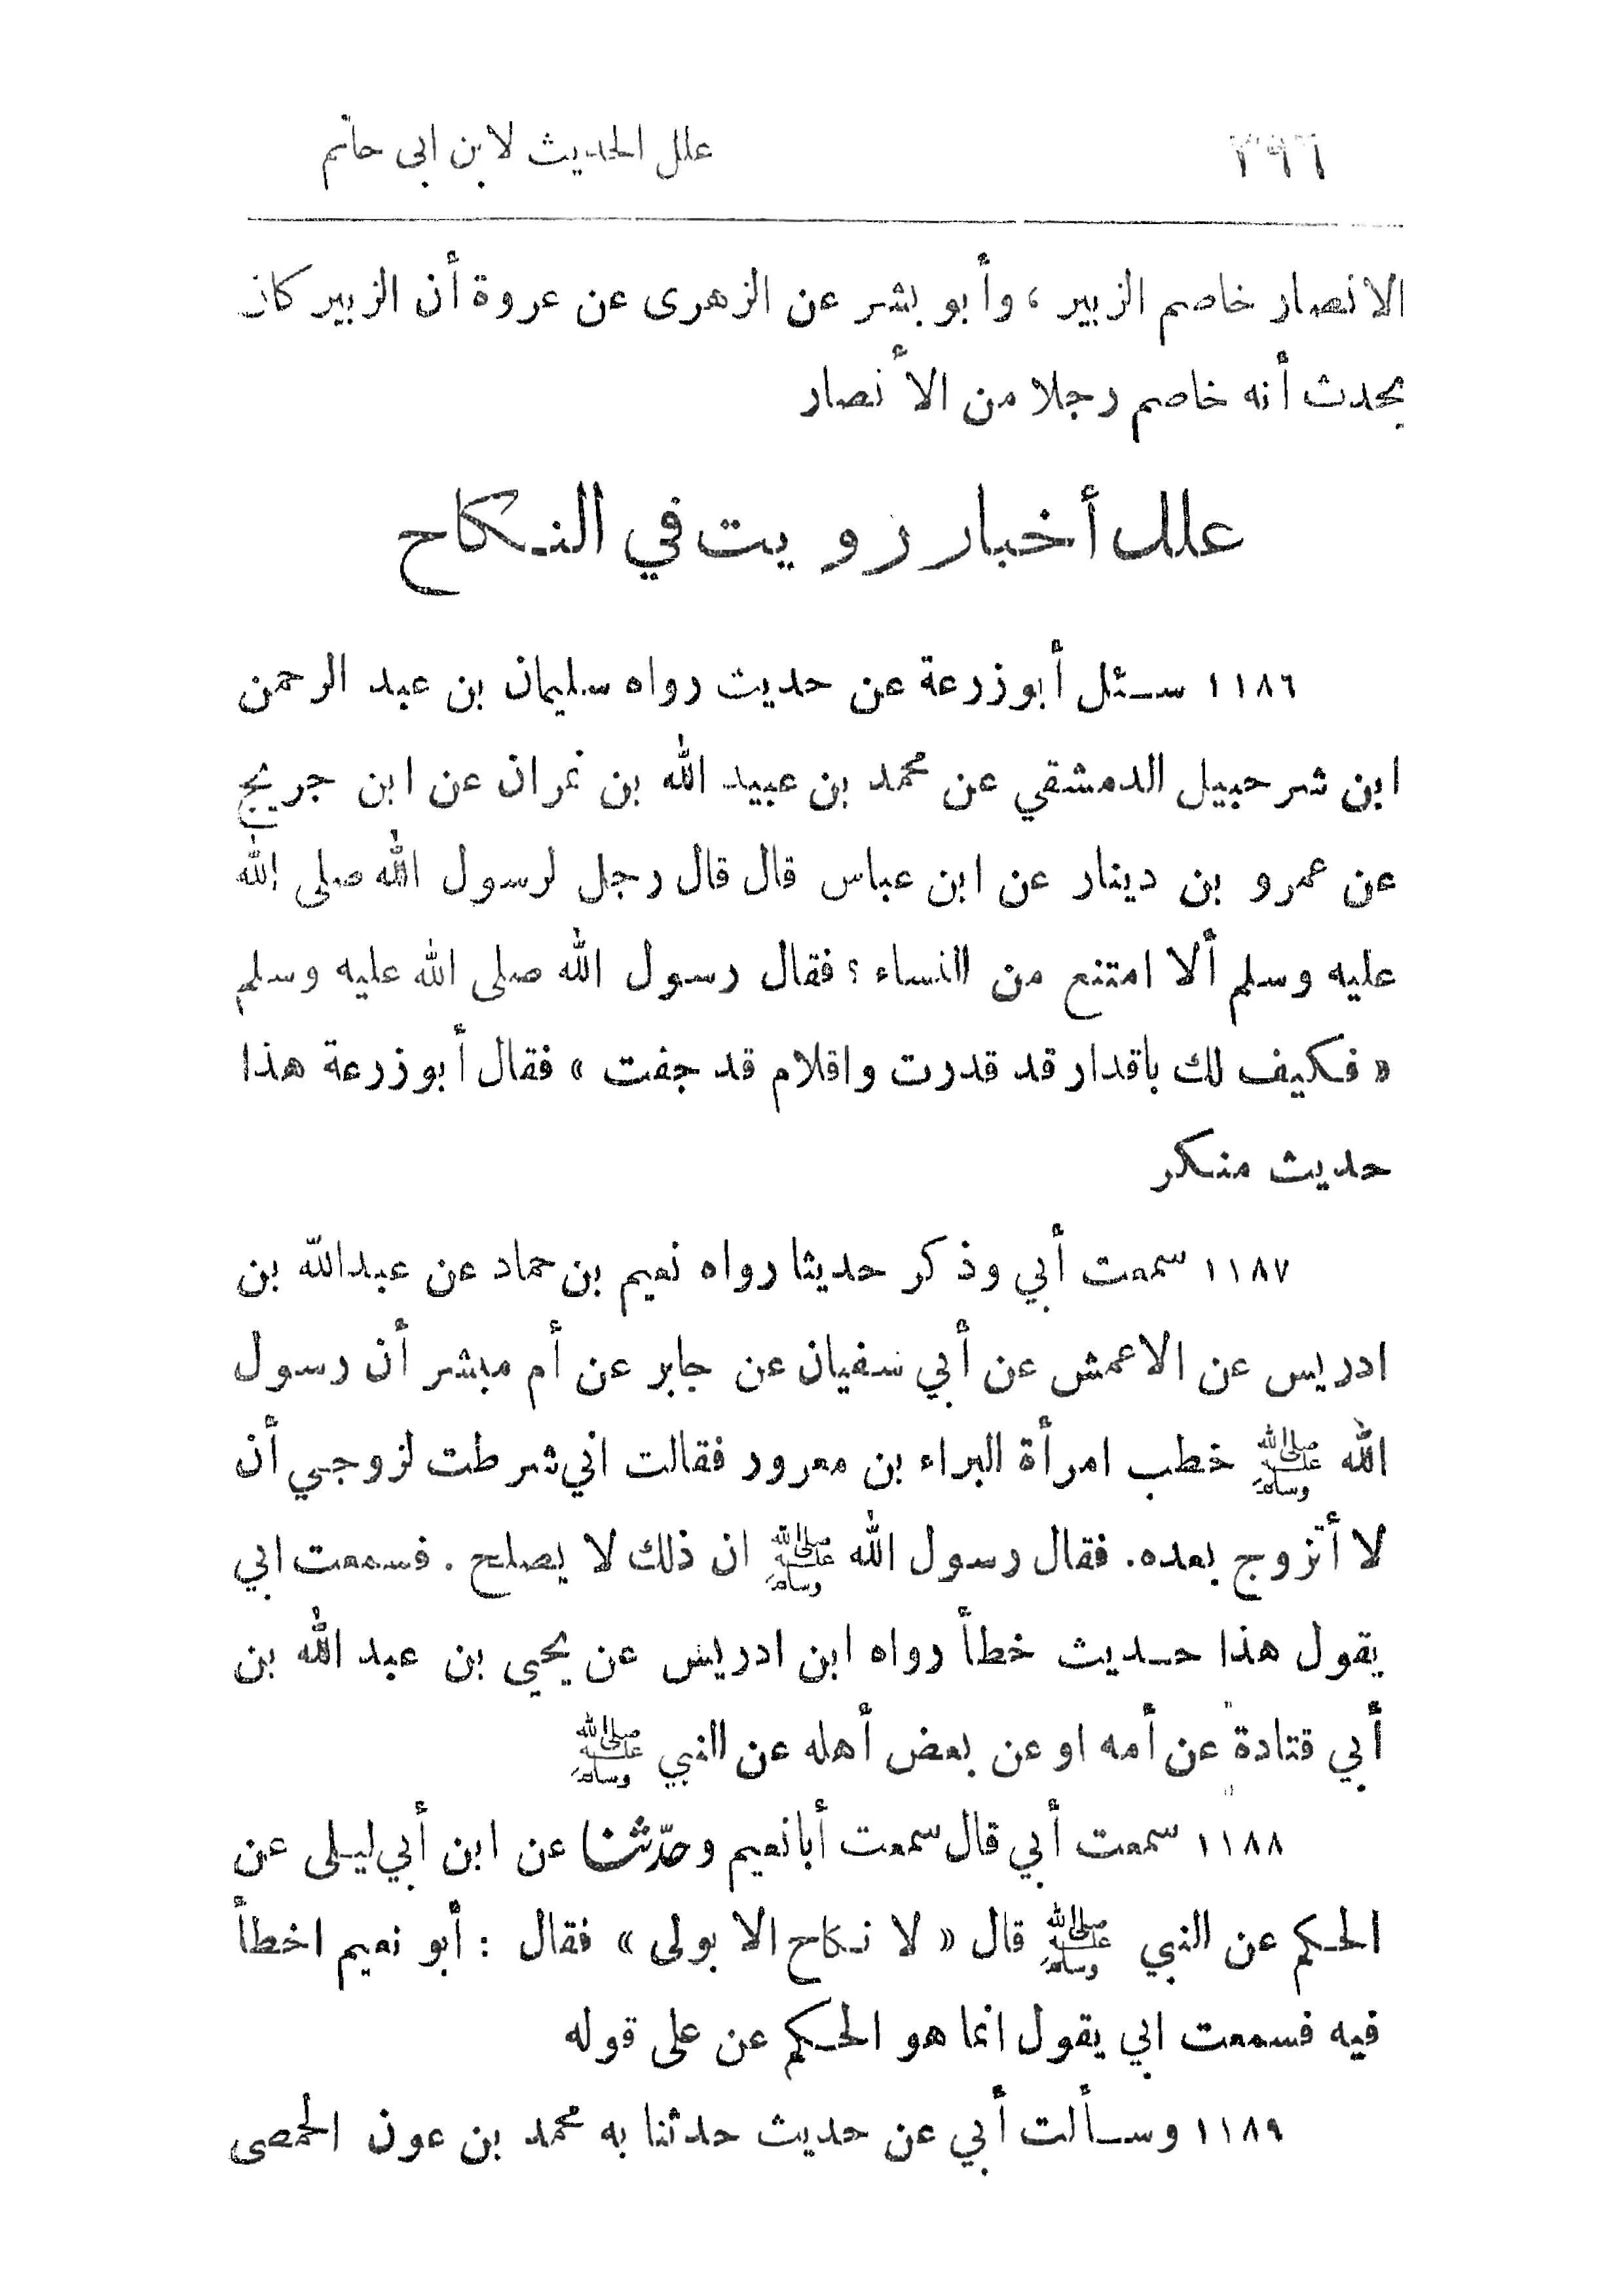 ٣٩٦ علل الحديث لابن ابى حاتم
الانصار خاصم الزبير ، وأبو بشر عن الزهرى عن عروة أن الزبير كان
يحدث أنه خاصم رجلا من الأنصار
علل أخبار رويت في النكاح
١١٨٦ سئل أبو زرعة عن حديث رواه سليمان بن عبد الرحمن
ابن شرحبيل الدمشقي عن محمد بن عبيد الله بن نمران عن ابن جريج
عن عمرو بن دينار عن ابن عباس قال قال رجل لرسول الله صلى الله
عليه وسلم ألا امتنع من النساء ؟ فقال رسول الله صلى الله عليه وسلم
« فكيف لك باقدار قد قدرت واقلام قد جفت » فقال أبو زرعة هذا
حديث منكر
١١٨٧ سمعت أبي وذكر حديثا رواه نعيم بن حماد عن عبدالله بن
ادريس عن الاعمش عن أبي سفيان عن جابر عن أم مبشر أن رسول
الله ﷺ خطب امرأة البراء بن معرور فقالت اني شرطت لزوجي أن
لا أتزوج بعده. فقال رسول الله ﷺ ان ذلك لا يصلح . فسمعت ابي
يقول هذا حديث خطأ رواه ابن ادريس عن يحيى بن عبد الله بن
أبي قتادة عن أمه او عن بعض أهله عن النبي ﷺ
١١٨٨ سمعت أبي قال سمعت أبا نعيم وحدّثنا عن ابن أبي ليلى عن
الحكم عن النبي ﷺ قال « لا نكاح الا بولى » فقال : أبو نعيم اخطأ
فيه فسمعت ابي يقول انما هو الحكم عن على قوله
١١٨٩ وسألت أبي عن حديث حدثنا به محمد بن عون الحمصى